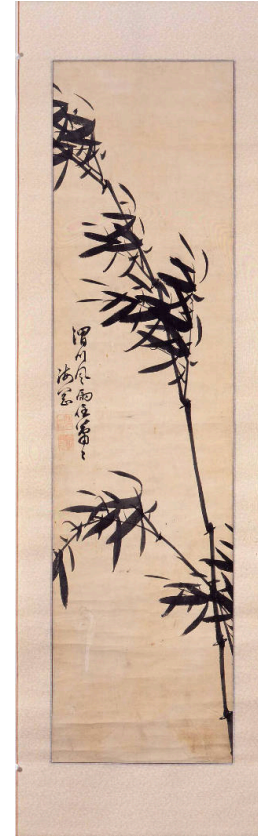 渭川風雨任蕭々
海岡